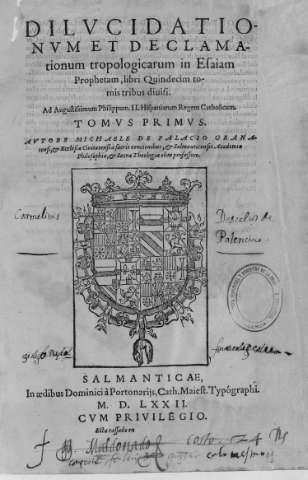 DILVCIDATIO-
NVM ET DECLAMA-
tionum tropologicarum in Esaiam
Prophetam, libri Quindecim to-
mis tribus diuisi.
Ad Augustissimum Philippum. II. Hispaniarum Regem Catholicum.
TOMVS PRIMVS.
AVTORE MICHAELE DE PALACIO GRANA-
tensi, & Ecclesiæ Ciuitatensis sacris concionibus, & Salmanticensis Academiæ
Philosophiæ, & Sacræ Theologiæ olim professore.
Cornelius
SALMANTICAE,
In ædibus Dominici à Portonarijs, Cath. Maiest. Typôgraphi.
M. D. LXXII.
CVM PRIVILEGIO.
Esta tassado en
Maldonado costo